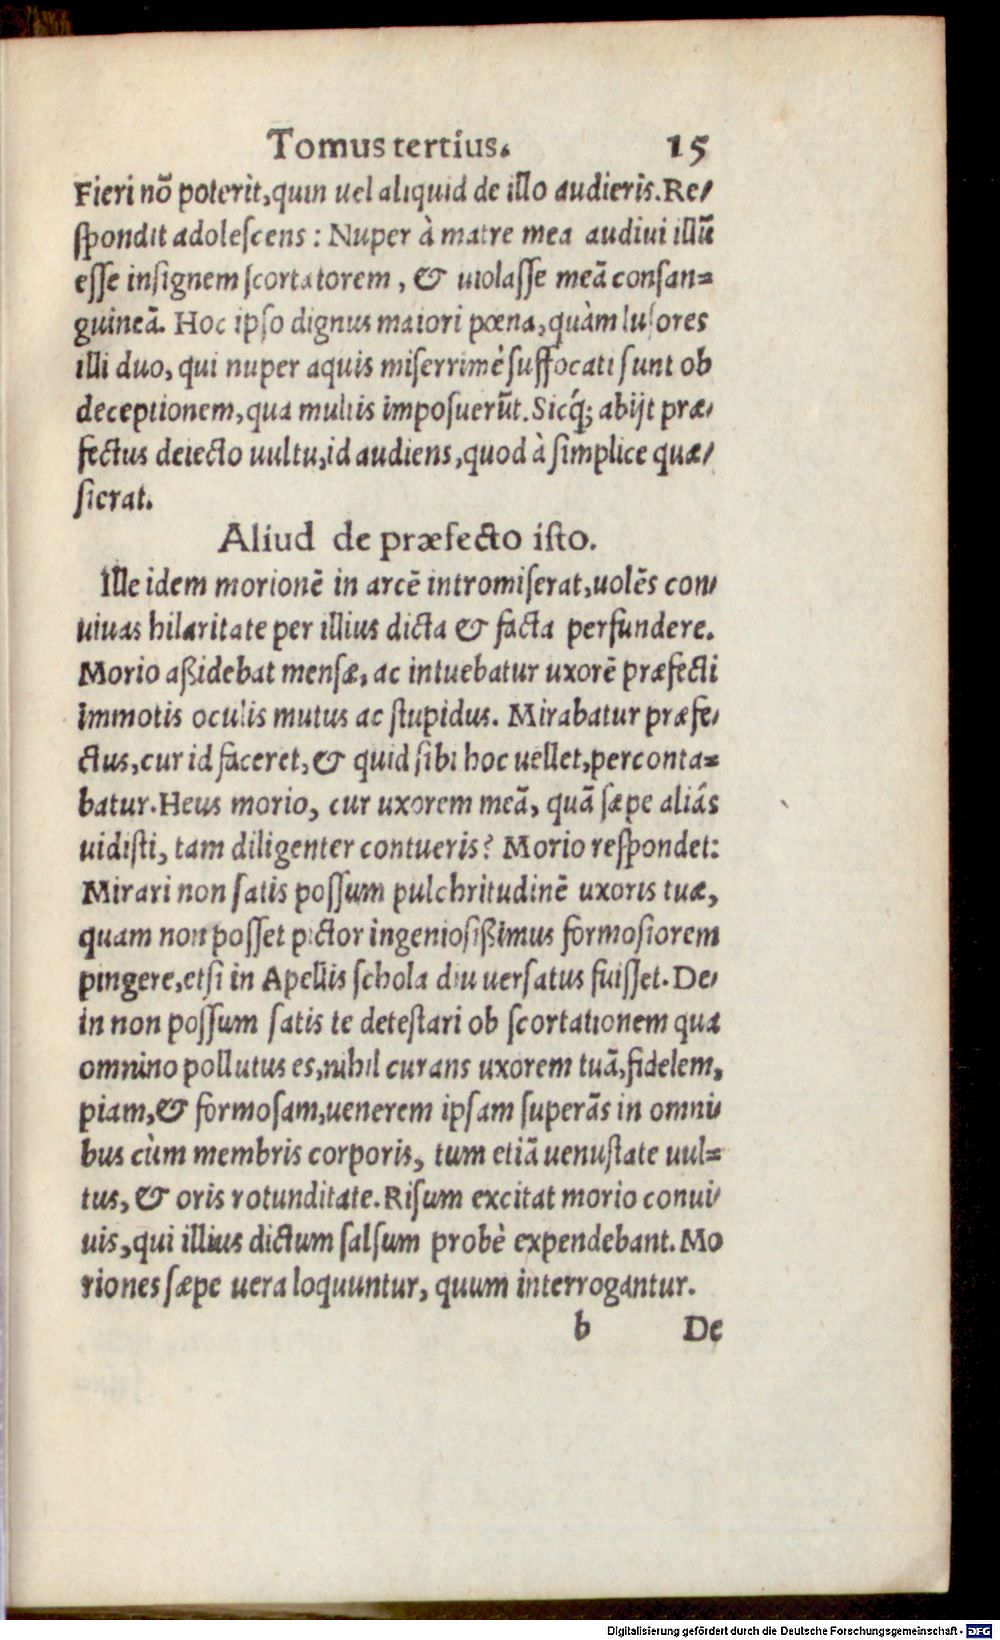 Tomus tertius. 15
Fieri nõ poterit, quin uel aliquid de illo audieris. Re-
spondit adolescens: Nuper à matre mea audiui illũ
esse insignem scortatorem, & uiolasse meã consan-
guineã. Hoc ipso dignus maiori pœna, quàm lusores
illi duo, qui nuper aquis miserrimè suffocati sunt ob
deceptionem, qua multis imposuerũt. Sicq́; abijt præ-
fectus deiecto uultu, id audiens, quod à simplice quæ-
sierat.
Aliud de præfecto isto.
Ille idem morionẽ in arcẽ intromiserat, uolẽs con-
uiuas hilaritate per illius dicta & facta perfundere.
Morio aßidebat mensæ, ac intuebatur uxorẽ præfecti
immotis oculis mutus ac stupidus. Mirabatur præfe-
ctus, cur id faceret, & quid sibi hoc uellet, perconta-
batur. Heus morio, cur uxorem meã, quã sæpe aliás
uidisti, tam diligenter contueris? Morio respondet:
Mirari non satis possum pulchritudinẽ uxoris tuæ,
quam non posset pictor ingeniosißimus formosiorem
pingere, etsi in Apellis schola diu uersatus fuisset. De-
in non possum satis te detestari ob scortationem qua
omnino pollutus es, nihil curans uxorem tuã, fidelem,
piam, & formosam, uenerem ipsam superãs in omni-
bus cùm membris corporis, tum etiã uenustate uul-
tus, & oris rotunditate. Risum excitat morio conui-
uis, qui illius dictum salsum probè expendebant. Mo
riones sæpe uera loquuntur, quum interrogantur.
b De
Digitalisierung gefördert durch die Deutsche Forschungsgemeinschaft - DFG